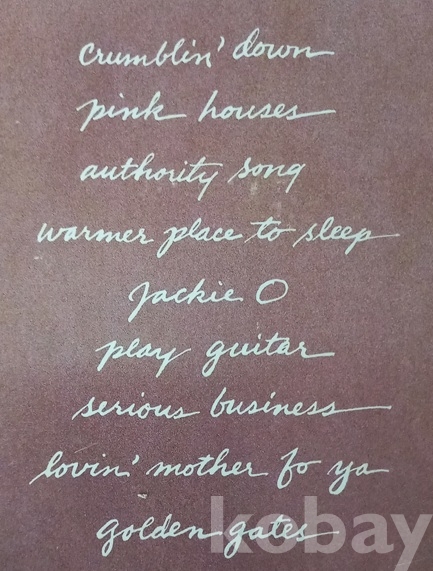 crumblin' down
pink houses
authority song
warmer place to sleep
Jackie O
play guitar
serious business
lovin' mother fo ya
golden gates
kobay